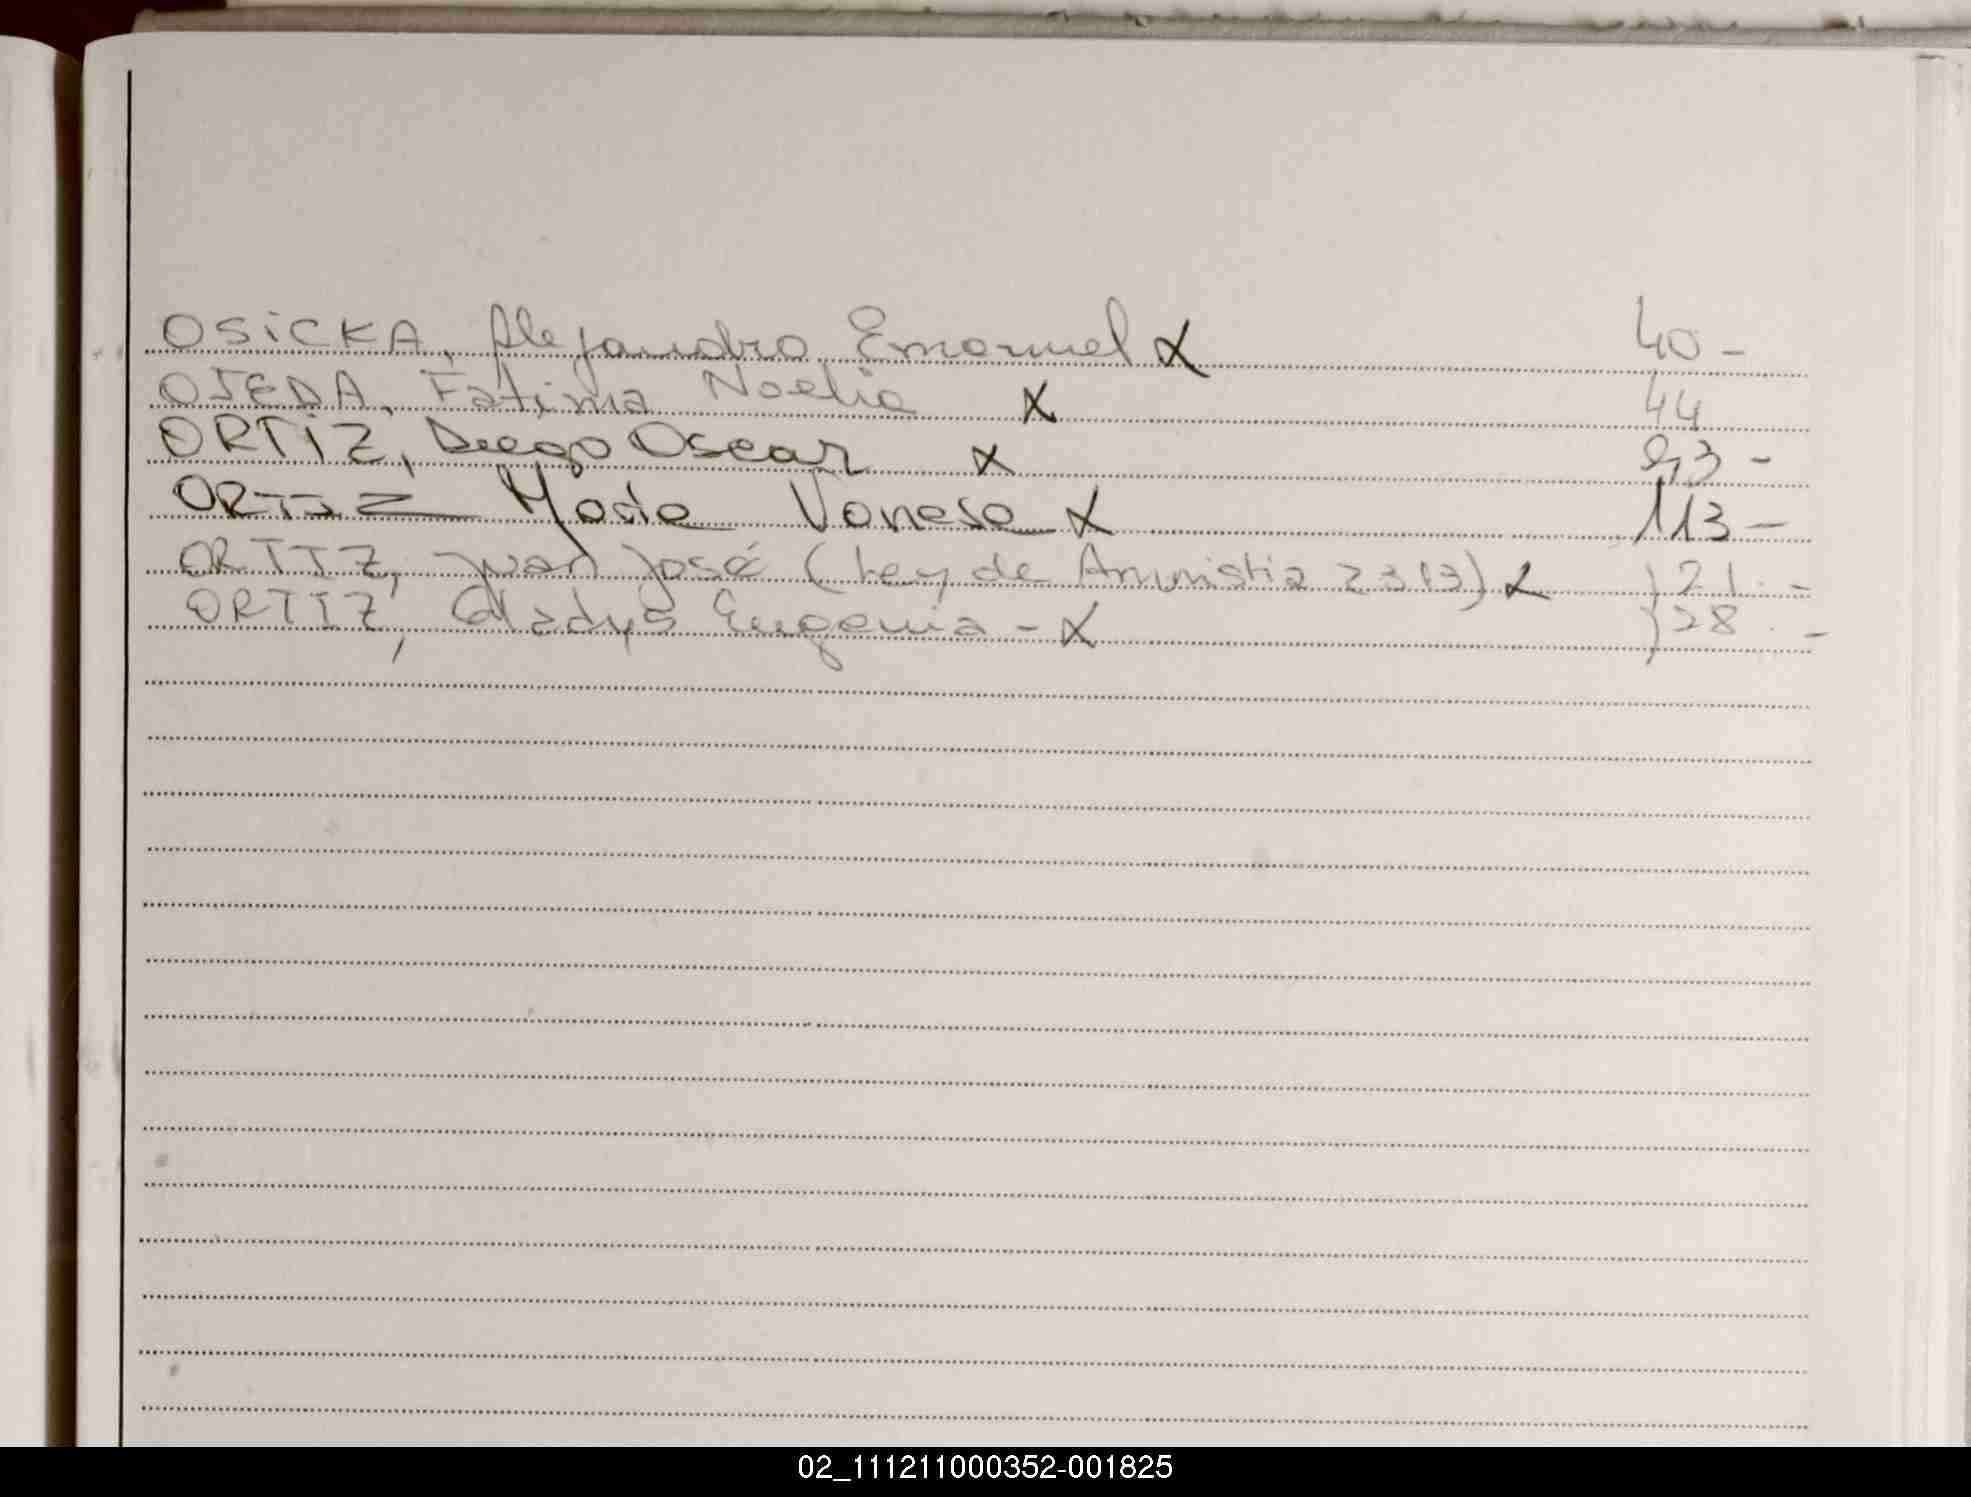 OSICKA, Alejandro Emanuel X 40 -
OJEDA, Fatima Noelia X 44
ORTIZ, Diego Oscar X 93 -
ORTIZ María Vanesa X 113 -
ORTIZ, Juan José (Ley de Amnistia 2313) X 121. -
ORTIZ, Gladys Eugenia - X 128. -
02_111211000352-001825